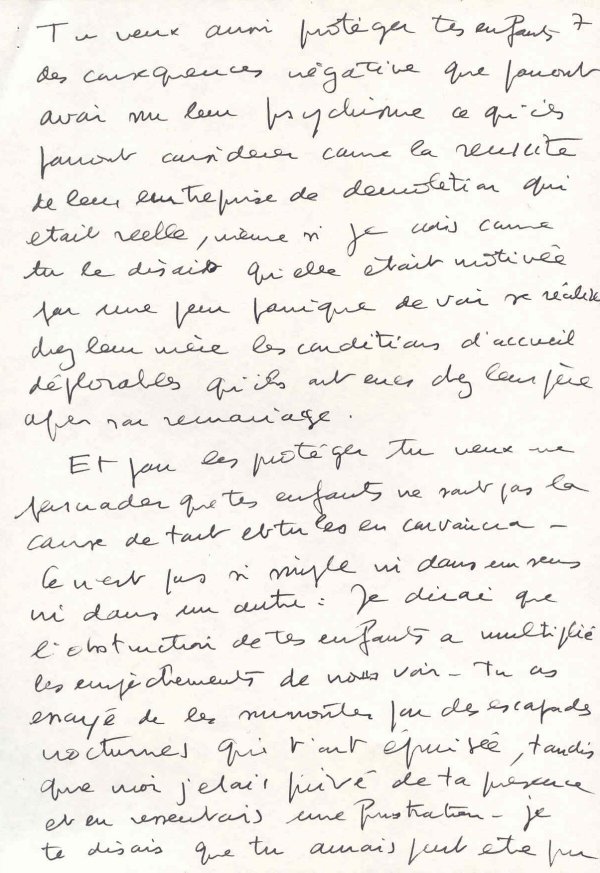 Tu veux aussi protéger tes enfants 7
des conséquences négative que pourront
avoir sur leur psychisme ce qu'ils
pourront considerer comme la reussite
de leur entreprise de demolition qui
etait reelle, même si je crois comme
tu le disais qu'elle était motivée
par une peur panique de voir se réaliser
chez leur mère les conditions d'accueil
déplorables qu'ils ont eues chez leur père
apres son remariage.
Et pour les protéger tu veux me
persuader que tes enfants ne sont pas la
cause de tout et tu les en convaincra -
Ce n'est pas si simple ni dans un sens
ni dans un autre : Je dirai que
l'obstruction de tes enfants a multiplié
les empêchements de nous voir - Tu as
essayé de les surmonter par des escapades
nocturnes qui t'ont épuisée, tandis
que moi j'etais privé de ta présence
et en ressentais une frustration - je
te disais que tu aurais peut etre pu